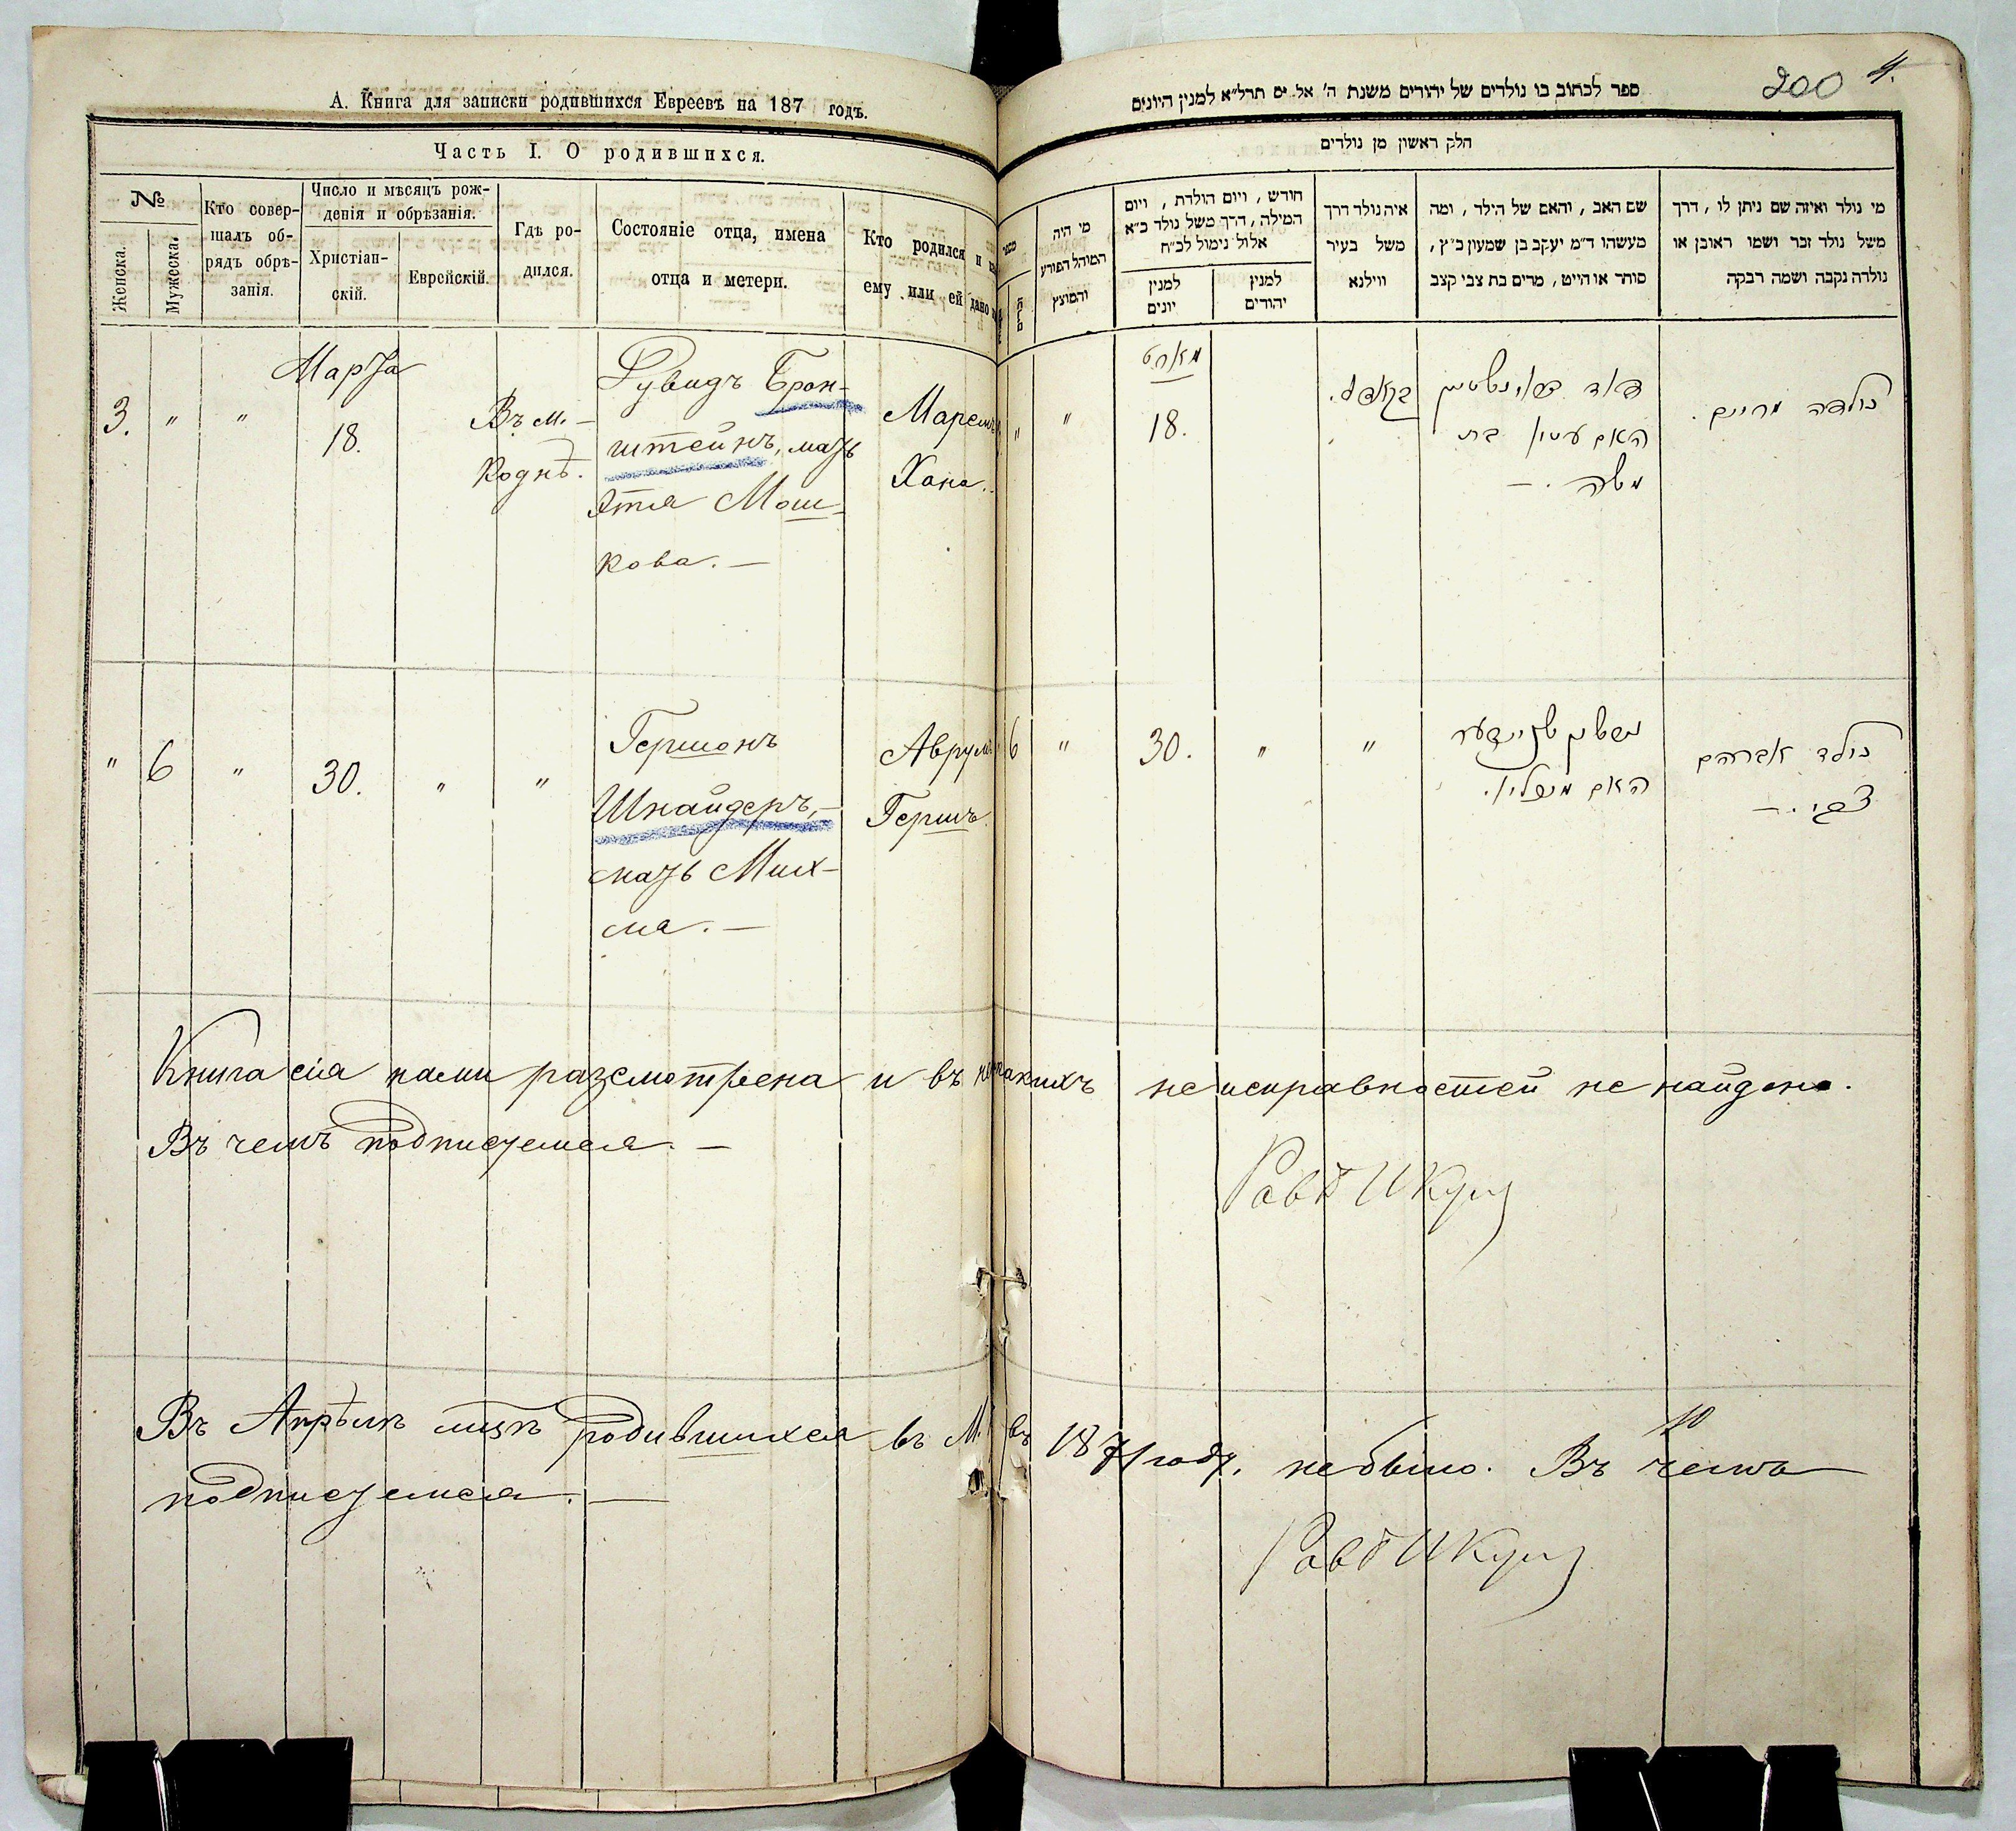 А. Книга для записки родившихся Евреевъ на 187 годъ.
Часть I. О родившихся.
№
Женска.
Мужеска.
Кто совер-
шалъ об-
рядъ обрѣ-
занія.
Число и мѣсяцъ рож-
денія и обрѣзанія.
Христіан-
скій.
Еврейскій.
Гдѣ ро-
дился.
Состояніе отца, имена
отца и метери.
Кто родился и
ему или ей дано
Марта
3. " " 18.
Въ м.
Коднѣ.
Брон-
штейнъ, мать
Этля Мош-
кова. —
Марем
Хана.
" 6 " 30. " "
Гершонъ
Шнайдеръ, —
мать Мих-
ла. —
Аврумъ
Гершъ.
ספר לכתוב בו נולדים של יהודים משנת ה' אל' ים תרל"א למנין היונים
200 4.
חלק ראשון מן נולדים
מי היה
המוהל הפורע
והמוצץ
חודש, ויום הולדת, ויום
המילה, דרך משל נולד כ"א
אלול נימול לכ"ח
למנין
יונים
למנין
יהודים
איה נולד דרך
משל בעיר
ווילנא
שם האב, והאם של הילד, ומה
מעשהו ד"מ יעקב בן שמעון כ"ץ,
סוחר או חייט, מרים בת צבי קצב
מי נולד ואיזה שם ניתן לו, דרך
משל נולד זכר ושמו ראובן או
נולדה נקבה ושמה רבקה
מארט
" " 18.
האם עטיל בת
משה. —
נולדה מרים.
6 " 30. " "
האם
נולד אברהם
צבי. —
Книга сія нами разсмотрена и въ ней никакихъ неисправностей не найдено.
Въ чемъ подписуемся. —
Въ Апрѣлѣ мцѣ родившихся въ М. въ 1871 году. не было. Въ чемъ
подписуемся. —